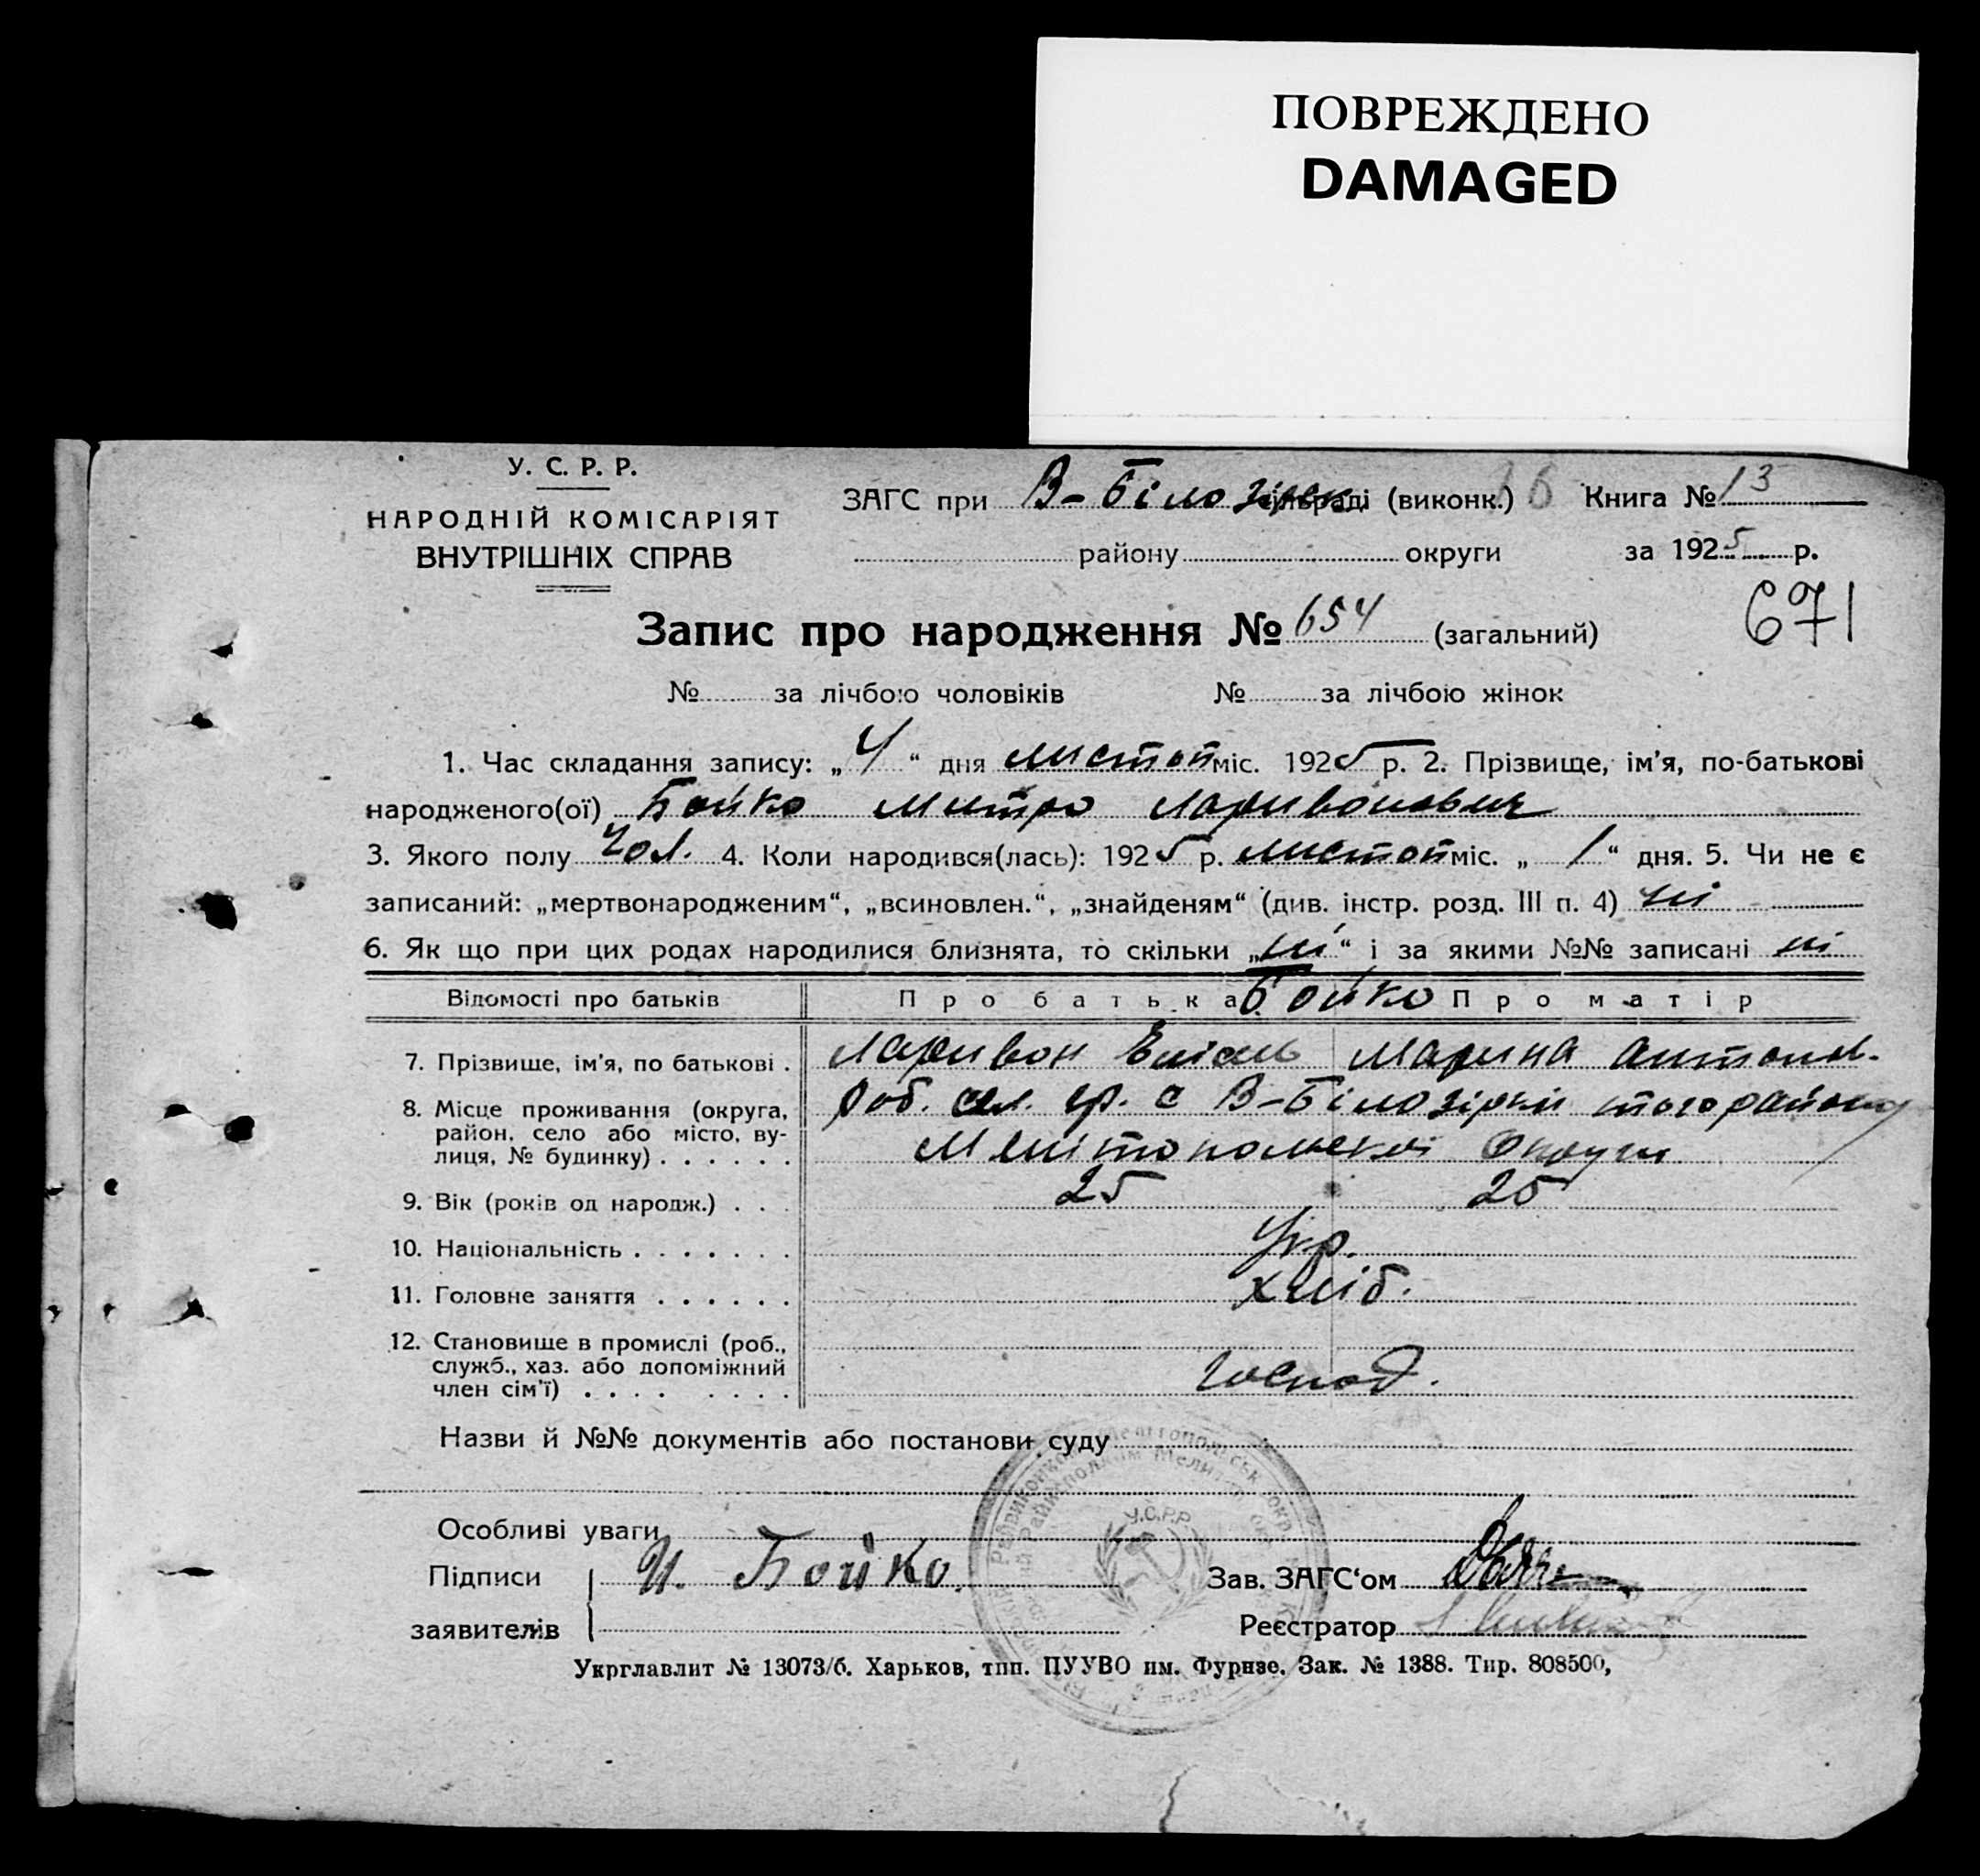 ПОВРЕЖДЕНО
DAMAGED
У. С. Р. Р.
НАРОДНІЙ КОМІСАРІЯТ
ВНУТРІШНІХ СПРАВ
ЗАГС при В-Білозірськ. сільраді (виконк.) Книга № 13
району округи за 1925 р.
Запис про народження № 654 (загальний)
671
№ за лічбою чоловіків № за лічбою жінок
1. Час складання запису: „4“ дня листоп міс. 1925 р. 2. Прізвище, ім'я, по-батькові
народженого(ої) Бойко Митро Ларивонович
3. Якого полу Чол. 4. Коли народився(лась): 1925 р. листоп міс. „1“ дня. 5. Чи не є
записаний: „мертвонародженим“, „всиновлен.“, „знайденям“ (див. інстр. розд. III п. 4) ні
6. Як що при цих родах народилися близнята, то скільки „ні“ і за якими №№ записані ні
Відомості про батьків Про батька Бойко Про матір
7. Прізвище, ім'я, по батькові . Ларивон Марина Антонов.
8. Місце проживання (округа, район, село або місто, вулиця, № будинку) . . . . . . гр. с В-Білозірки того району
Мелітопольської Округи
9. Вік (років од народж.) . . . 25 25
10. Національність . . . . . . . Укр.
11. Головне заняття . . . . . . хліб.
12. Становище в промислі (роб., служб., хаз. або допоміжний член сім'ї) . . . . . . . . господ.
Назви й №№ документів або постанови суду
У.С.Р.Р.
Особливі уваги
Підписи И. Бойко. Зав. ЗАГС‘ом
заявителів Реєстратор
Укрглавлит № 13073/б. Харьков, тип. ПУУВО им. Фрунзе. Зак. № 1388. Тир. 808500,